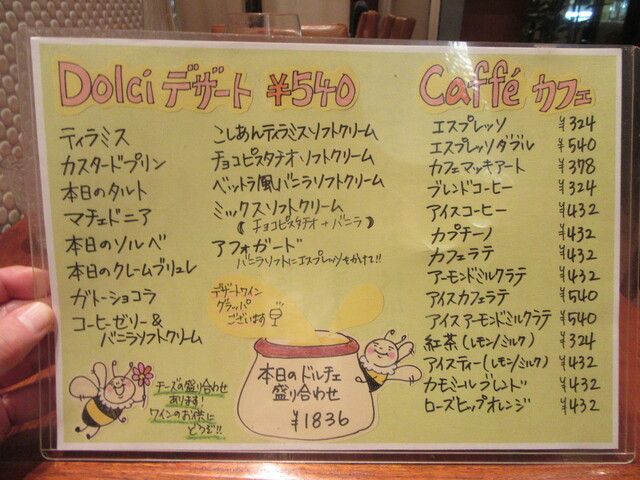 Dolci デザート ¥540
ティラミス
カスタードプリン
本日のタルト
マチェドニア
本日のソルベ
本日のクレームブリュレ
ガトーショコラ
コーヒーゼリー&
バニラソフトクリーム
こしあんティラミスソフトクリーム
チョコピスタチオソフトクリーム
ベットラ風バニラソフトクリーム
ミックスソフトクリーム
(チョコピスタチオ+バニラ)
アフォガード
バニラソフトにエスプレッソをかけて!!
デザートワイン
グラッパ
ございます
チーズの盛り合わせ
あります!
ワインのお供に
どうぞ!!
本日のドルチェ
盛り合わせ
¥1836
Caffé カフェ
エスプレッソ ¥324
エスプレッソダブル ¥540
カフェマッキアート ¥378
ブレンドコーヒー ¥324
アイスコーヒー ¥432
カプチーノ ¥432
カフェラテ ¥432
アーモンドミルクラテ ¥432
アイスカフェラテ ¥540
アイスアーモンドミルクラテ ¥540
紅茶(レモン/ミルク) ¥324
アイスティー(レモン/ミルク) ¥432
カモミールブレンド ¥432
ローズヒップオレンジ ¥432